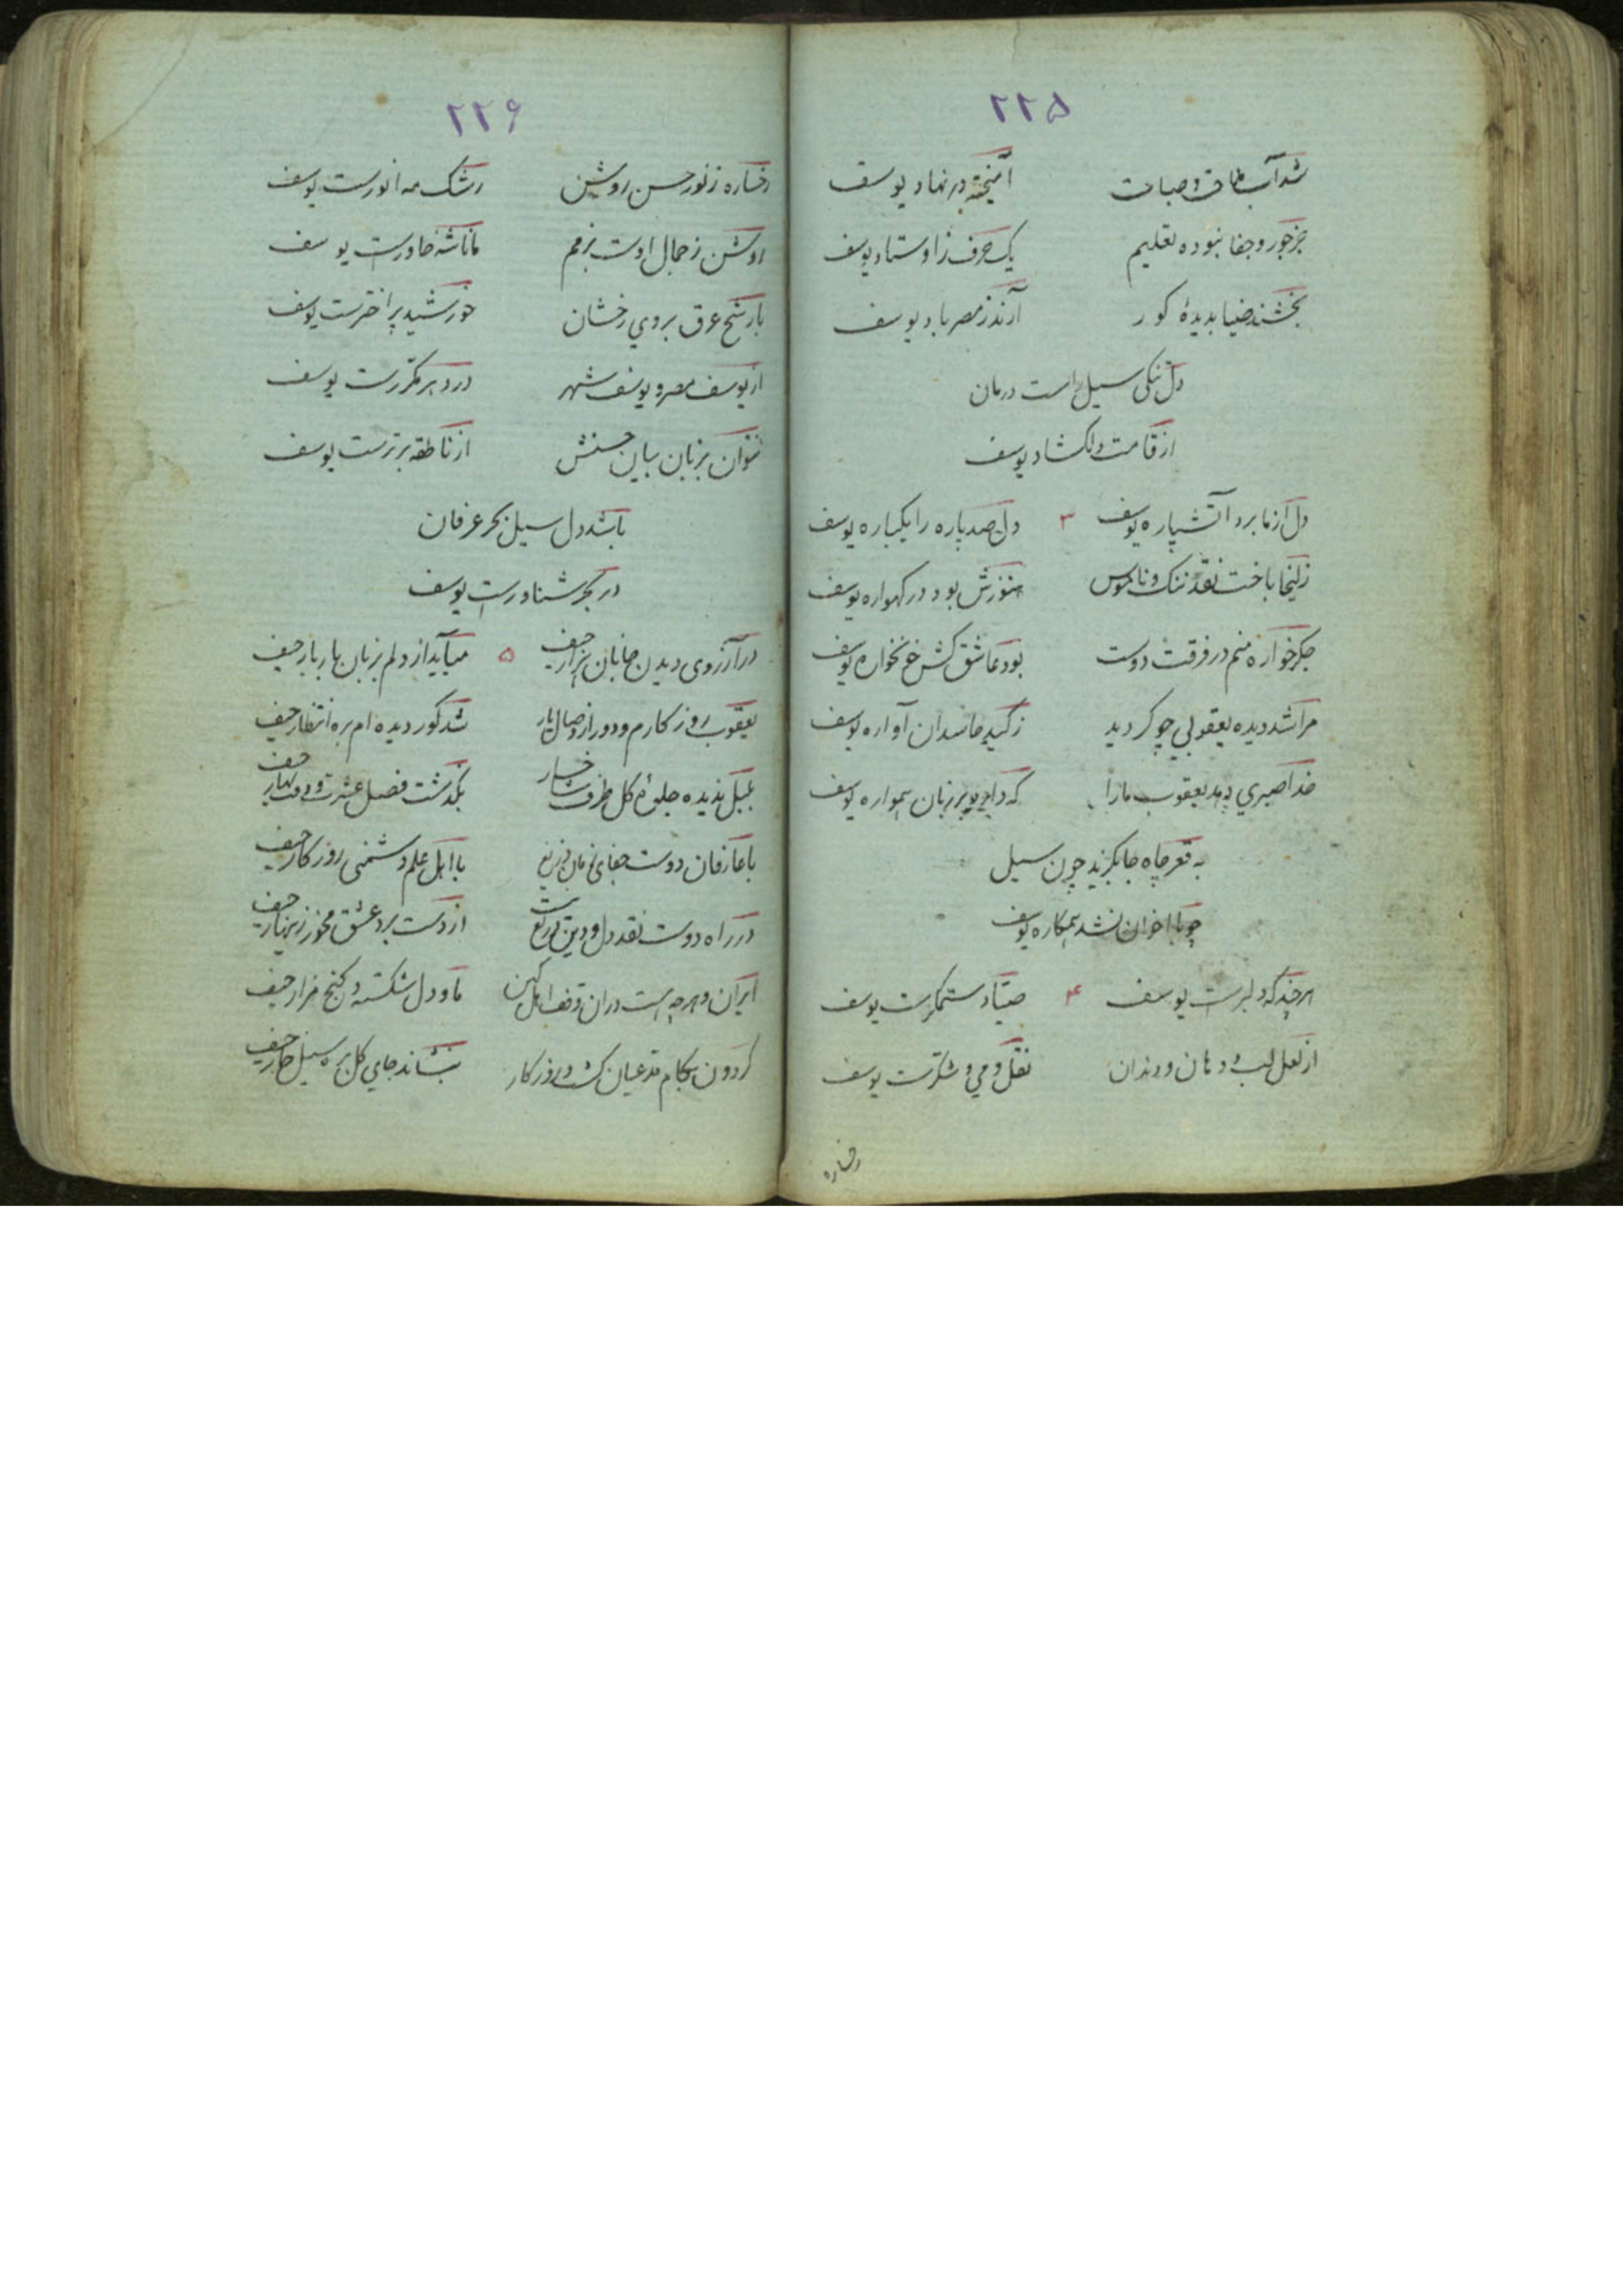 ۲۲۵
شد آب ملاقت و صباحت آمیخته در نهاد یوسف
جز جور و جفا نبوده تعلیم یک حرف ز اوستاد یوسف
بخشند ضیا بدیدهٔ کور آرند ز مصر باد یوسف
دل تنگی سیل راست درمان
از قامت دلگشاد یوسف
دل از ما برد آتشپاره یوسف ۳ دل صد پاره را یکباره یوسف
زلیخا باخت نقد ننک و ناموس هنوزش بود در کهواره یوسف
جگرخواره منم در فرقت دوست بود عاشق کش غمخواره یوسف
مرا شد دیده یعقوبی چو کردید ز کید حاسدان آواره یوسف
خدا صبری دهد یعقوب ما را که دارد بر زبان همواره یوسف
به قعر چاه جا بگزید چون سیل
چو با اخوان نشد همکاره یوسف
هر چند که دلبرست یوسف ۴ صیاد ستمگرست یوسف
از لعل لب و دهان و دندان نقل و می و شکرست یوسف
رخساره
۲۲۶
رخساره ز نور حسن روشن رشک مه انورست یوسف
روشن ز جمال اوست بزمم مانا شه خاورست یوسف
با رشح عرق بروی رخشان خورشید پر اخترست یوسف
از یوسف مصر و یوسف شهر در دهر مکررست یوسف
نتوان بزبان بیان حسنش از ناطقه برترست یوسف
باشد دل سیل بحر عرفان
در بحر شناورست یوسف
در آرزوی دیدن جانان هزار حیف ۵ میآید از دلم بزبان بار بار حیف
یعقوب روزکارم و دور از وصال یار شد کور دیده ام بره انتظار حیف
بلبل ندیده جلوهٔ گل طرف شاخسار بگذشت فصل عشرت و وقت بهار حیف
با عارفان دوست جفای زمان دریغ با اهل علم دشمنی روزکار حیف
در راه دوست نقد دل و دین از دست برد عشق مخور زینهار حیف
ایران و هر چه هست در آن وقف اهل کین ما و دل شکسته و کنج مزار حیف
کردون بکام مدعیان کشت روزکار بنشاند جای کل بره سیل خار حیف